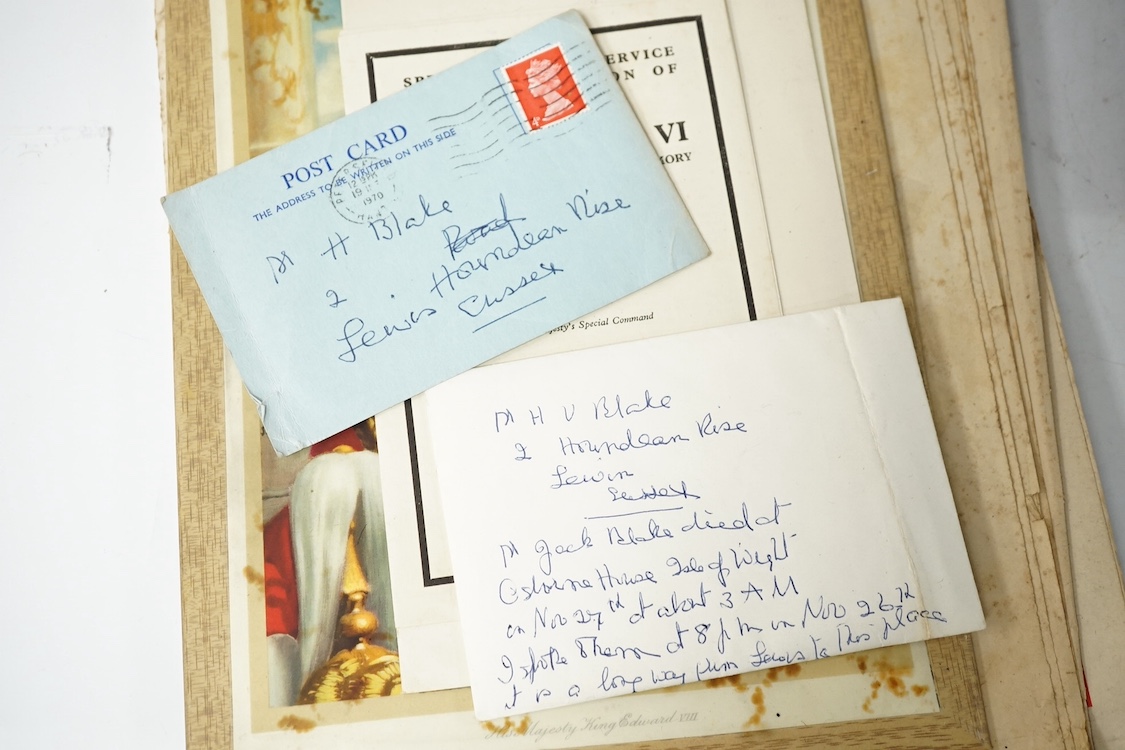 POST CARD
THE ADDRESS TO BE WRITTEN ON THIS SIDE
12
19
1970
4
Mr H Blake
Road
2 Houndean Rise
Lewis Sussex
SERVICE
ON OF
VI
MORY
esty's Special Command
Mr H V Blake
2 Houndean Rise
Lewis
Sussex
Mr Jack Blake died at
Osborne House Isle of Wight
on Nov 27th at about 3 AM
I spoke at 8 pm on Nov 26th
it is a long way from Lewis to this place
His Majesty King Edward VIII